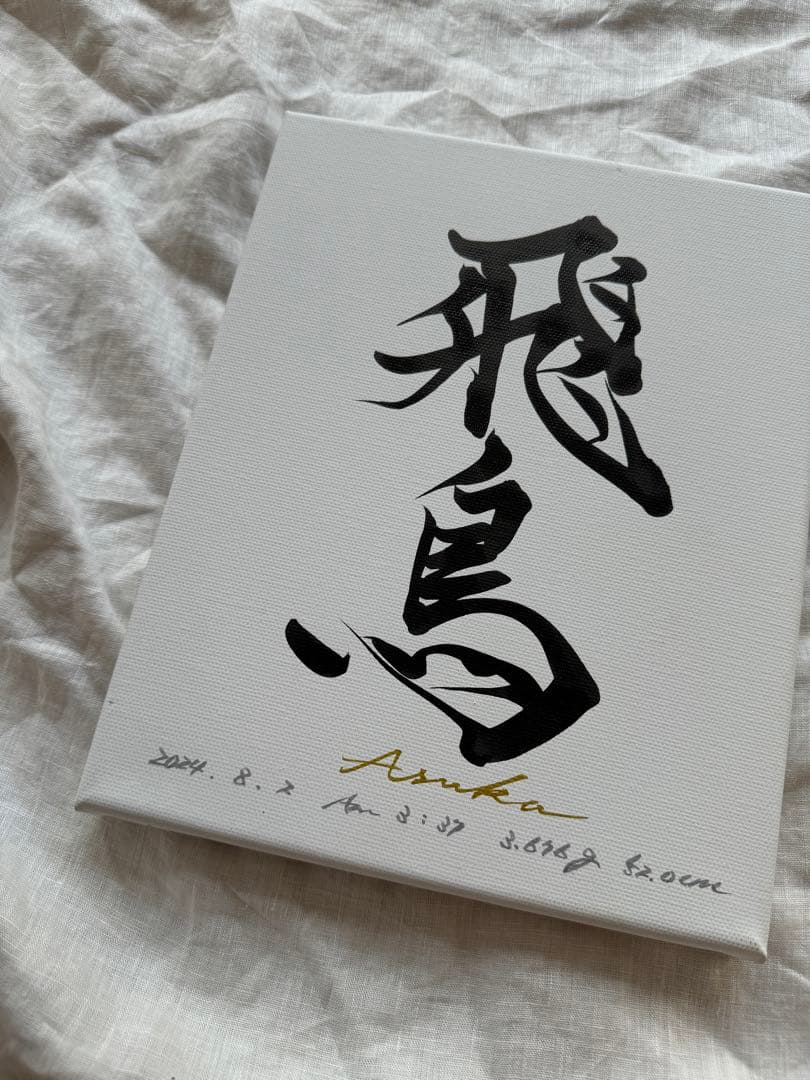 飛鳥
Asuka
2024. 8. 2 Am 3:37 3.696g 52.0cm